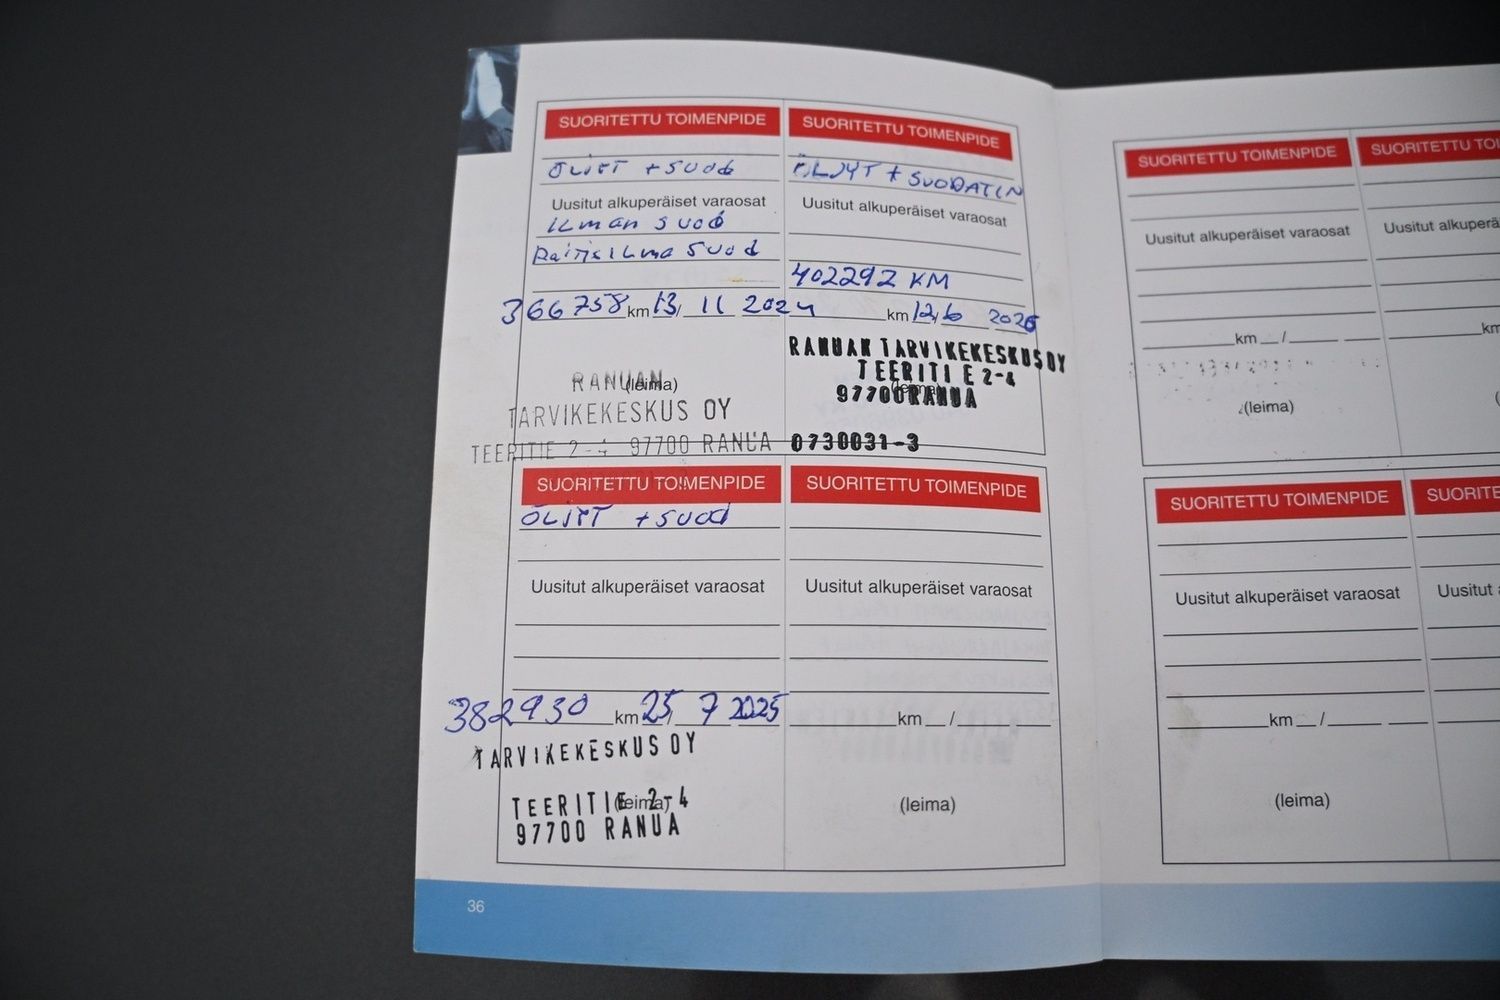 SUORITETTU TOIMENPIDE
ÖLJYT + SUOD
Uusitut alkuperäiset varaosat
ILman suod
Raitisilma suod
366758 km 13/ 11 2024
(leima)
RANUAN
TARVIKEKESKUS OY
TEERITIE 2-4 97700 RANUA
SUORITETTU TOIMENPIDE
ÖLJYT + SUODATIN
Uusitut alkuperäiset varaosat
402292 KM
km 12/6 2026
RANUAN TARVIKEKESKUS OY
TEERITI E 2-4
(leima)
97700 RANUA
0730031-3
SUORITETTU TOIMENPIDE
ÖLJYT + SUOD
Uusitut alkuperäiset varaosat
382930 km 25/ 7 2025
TARVIKEKESKUS OY
TEERITIE 2-4
(leima)
97700 RANUA
SUORITETTU TOIMENPIDE
Uusitut alkuperäiset varaosat
km /
(leima)
36
SUORITETTU TOIMENPIDE
Uusitut alkuperäiset varaosat
km /
(leima)
SUORITETTU TOI
Uusitut alkuperä
km
(
SUORITETTU TOIMENPIDE
Uusitut alkuperäiset varaosat
km /
(leima)
SUORITE
Uusitut a